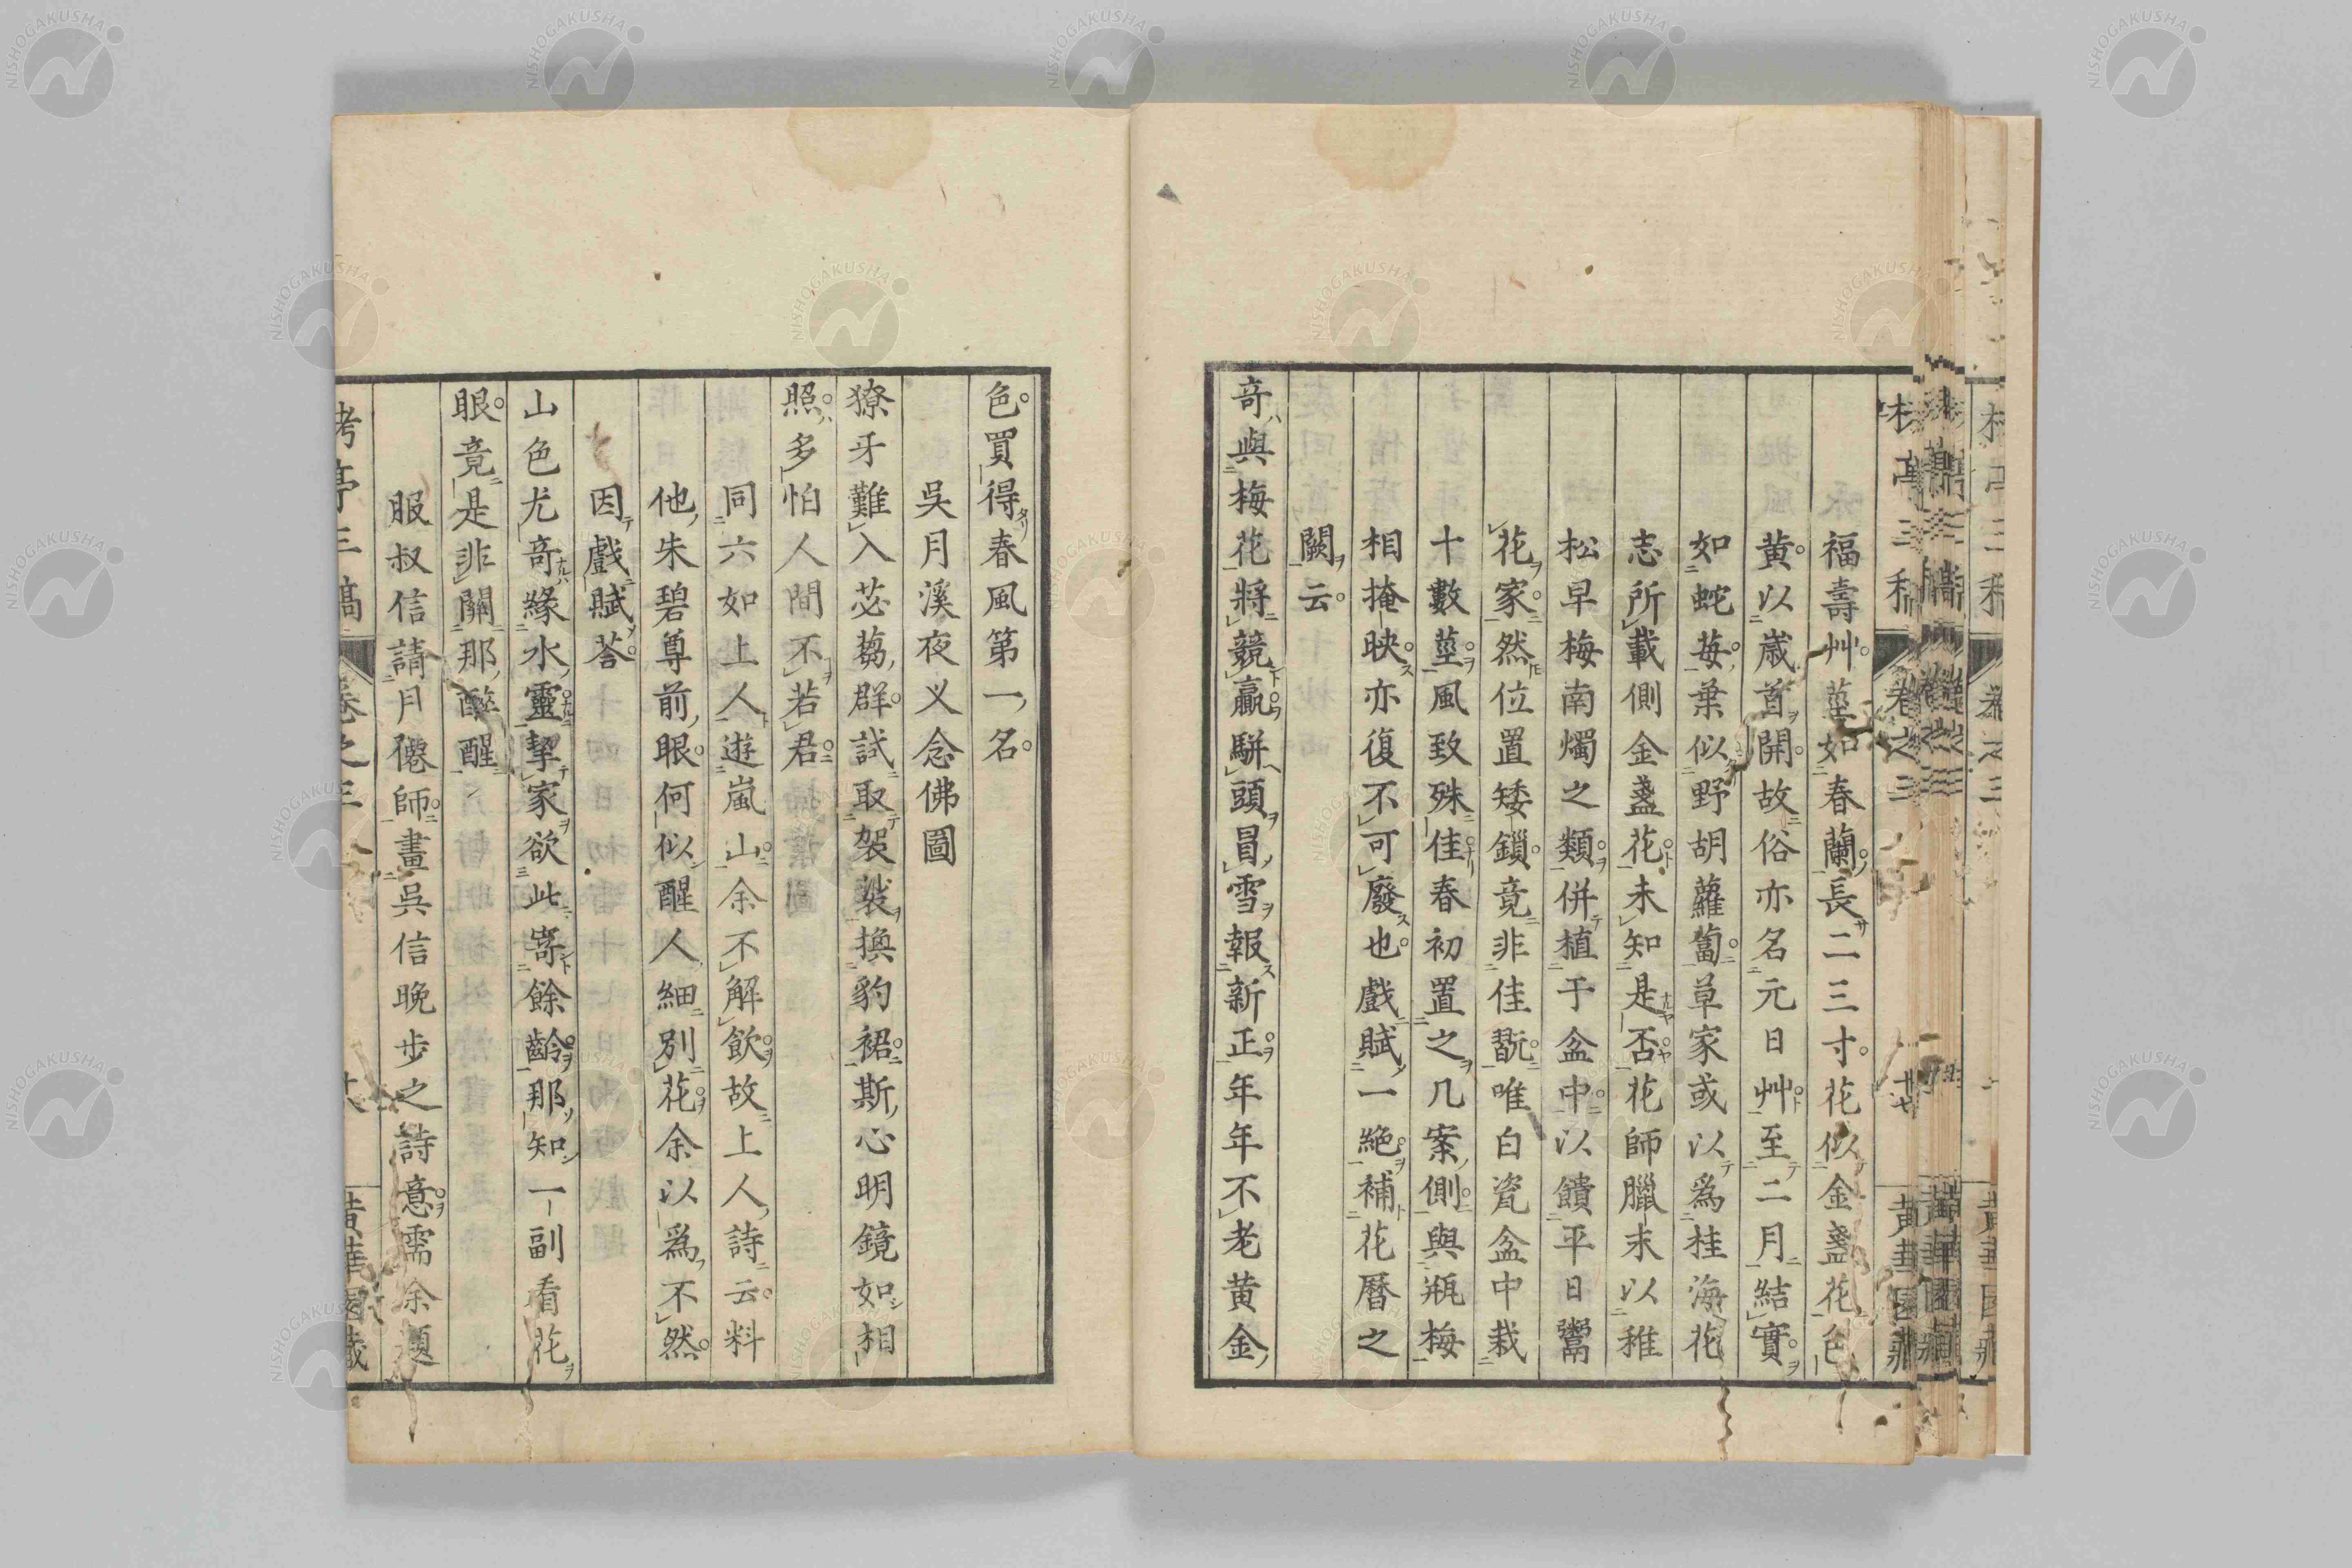 福壽艸莖如春蘭長二三寸花似金盞花色
黄以歳首開故俗亦名元日艸至二月結實
如蛇苺葉似野胡蘿蔔草家或以爲桂海花
志所載側金盞花未知是否花師臘末以稚
松早梅南燭之類併植于盆中以饋平日鬻
花家然位置矮鎖竟非佳翫唯白瓷盆中栽
十數莖風致殊佳春初置之几案側與瓶梅
相掩映亦復不可廢也戲賦一絶補花暦之
闕云
奇與梅花將競贏駢頭冒雪報新正年年不老黄金
色買得春風第一名
吳月溪夜叉念佛圖
獠牙難入苾蒭群試取袈裟換豹裙斯心明鏡如相
照多怕人間不若君
同六如上人遊嵐山余不解飲故上人詩云料
他朱碧尊前眼何似醒人細別花余以爲不然
因戲賦荅
山色尤奇緣水靈挈家欲此寄餘齡那知一副看花
眼竟是非關那醉醒
服叔信請月僊師畫吳信晩歩之詩意需余題
卷之三